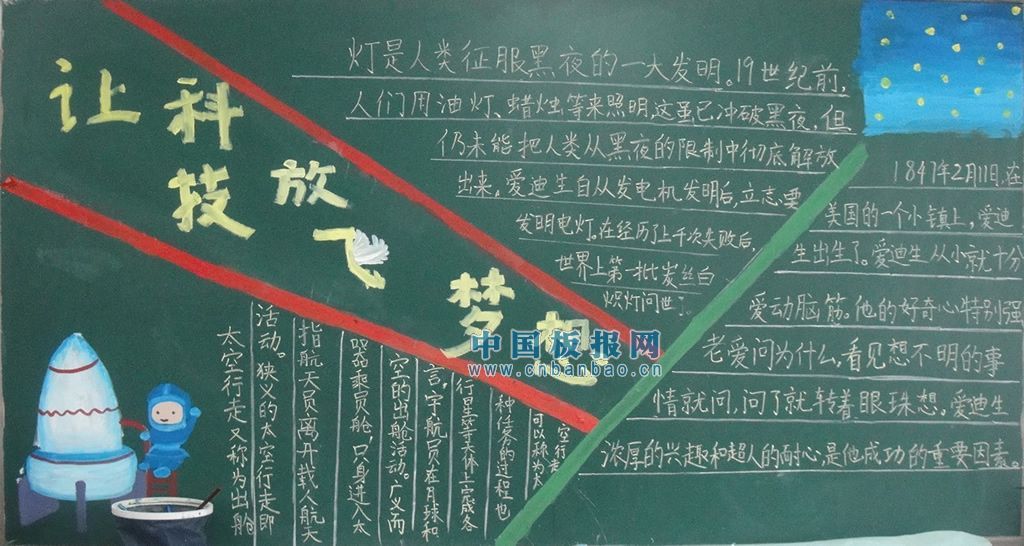 让科
技放
飞
梦想
灯是人类征服黑夜的一大发明。19世纪前,
人们用油灯、蜡烛等来照明,这虽已冲破黑夜,但
仍未能把人类从黑夜的限制中彻底解放
出来。爱迪生自从发电机发明后,立志要
发明电灯。在经历上千次失败后,
世界上第一批炭丝白
炽灯问世了。
1847年2月11日,在
美国的一个小镇上,爱迪
生出生了。爱迪生从小就十分
爱动脑筋。他的好奇心特别强
老爱问为什么,看见想不明的事
情就问,问了就转着眼珠想。爱迪生
浓厚的兴趣和超人的耐心,是他成功的重要因素。
太空行走又称为出舱
活动。狭义的太空行走即
指航天员离开载人航天
器乘员舱,只身进入太
空的出舱活动。广义而
言,宇航员在月球和
行星等天体上完成各
种任务的过程也
可以称为太
空行走
中国板报网
www.cnbanbao.cn